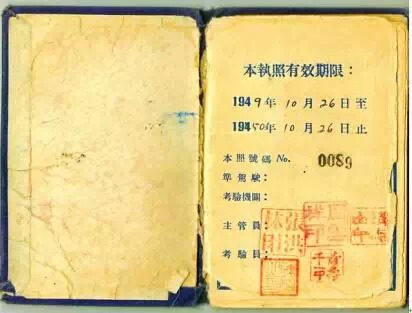 本執照有效期限：
1949年10月26日至
19450年10月26日止
本照號碼 No. 0089
準駕駛：
考驗機關：
主管員：
考驗員：